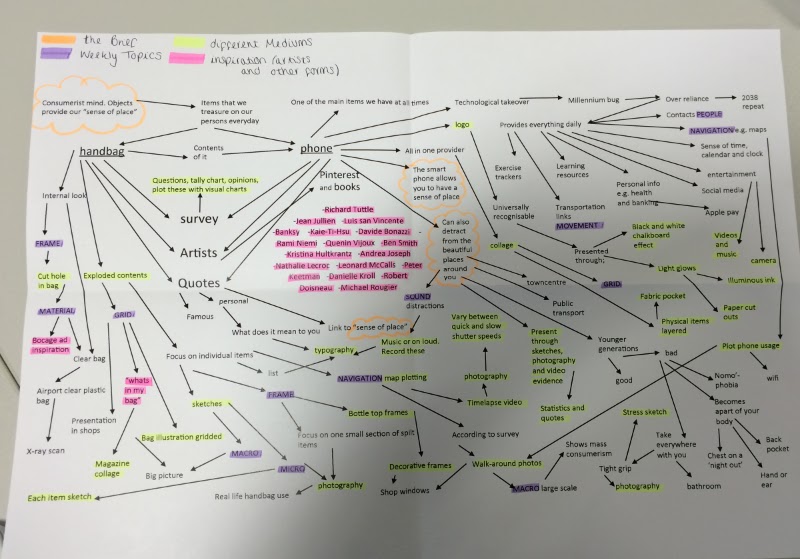 the Brief
different Mediums
Weekly Topics
inspiration (artists
and other forms)
Consumerist mind. Objects
provide our "sense of place"
Items that we
treasure on our
persons everyday
One of the main items we have at all times
Technological takeover
Millennium bug
Over reliance
2038
repeat
Contacts PEOPLE
logo
Provides everything daily
NAVIGATION e.g. maps
handbag
Contents
of it
phone
All in one provider
Sense of time,
calendar and clock
Exercise
trackers
Learning
resources
entertainment
The smart
phone allows
you to have a
sense of place
Pinterest
and books
Questions, tally chart, opinions,
plot these with visual charts
Personal info
e.g. health
and banking
Social media
Internal look
survey
Universally
recognisable
Transportation
links
MOVEMENT
Apple pay
-Richard Tuttle
-Jean Jullien -Luis san Vincente
-Banksy -Kaie-Ti-Hsu -Davide Bonazzi -
Rami Niemi -Quenin Vijoux -Ben Smith
-Kristina Hultkrantz -Andrea Joseph
-Nathalie Lecroc -Leonard McCalls -Peter
Keetman -Danielle Kroll -Robert
Doisneau -Michael Rougier
Can also
detract
from the
beautiful
places
around
you
Black and white
chalkboard
effect
Videos
and
music
FRAME
Artists
collage
Presented
through;
camera
Light glows
Illuminous ink
Cut hole
in bag
Exploded contents
Quotes
towncentre
GRID
SOUND
distractions
Fabric pocket
Public
transport
Paper cut
outs
personal
Famous
MATERIAL
GRID
Link to "sense of place"
Vary between
quick and slow
shutter speeds
Physical items
layered
What does it mean to you
Present
through
sketches,
photography
and video
evidence
Younger
generations
Plot phone usage
Bocage ad
inspiration
Clear bag
Focus on individual items
typography
Music or on loud.
Record these
bad
good
Nomo'-
phobia
wifi
list
NAVIGATION map plotting
photography
Airport clear plastic
bag
"whats
in my
bag"
FRAME
sketches
Timelapse video
Statistics and
quotes
Stress sketch
Becomes
apart of your
body
Bottle top frames
Presentation
in shops
Bag illustration gridded
Focus on one small section of split
items
According to survey
Shows mass
consumerism
Take
everywhere
with you
Back
pocket
X-ray scan
MACRO
Chest on a
'night out'
Magazine
collage
Big picture
MICRO
Decorative frames
Walk-around photos
Tight grip
Hand or
ear
Each item sketch
Real life handbag use
photography
Shop windows
MACRO large scale
photography
bathroom